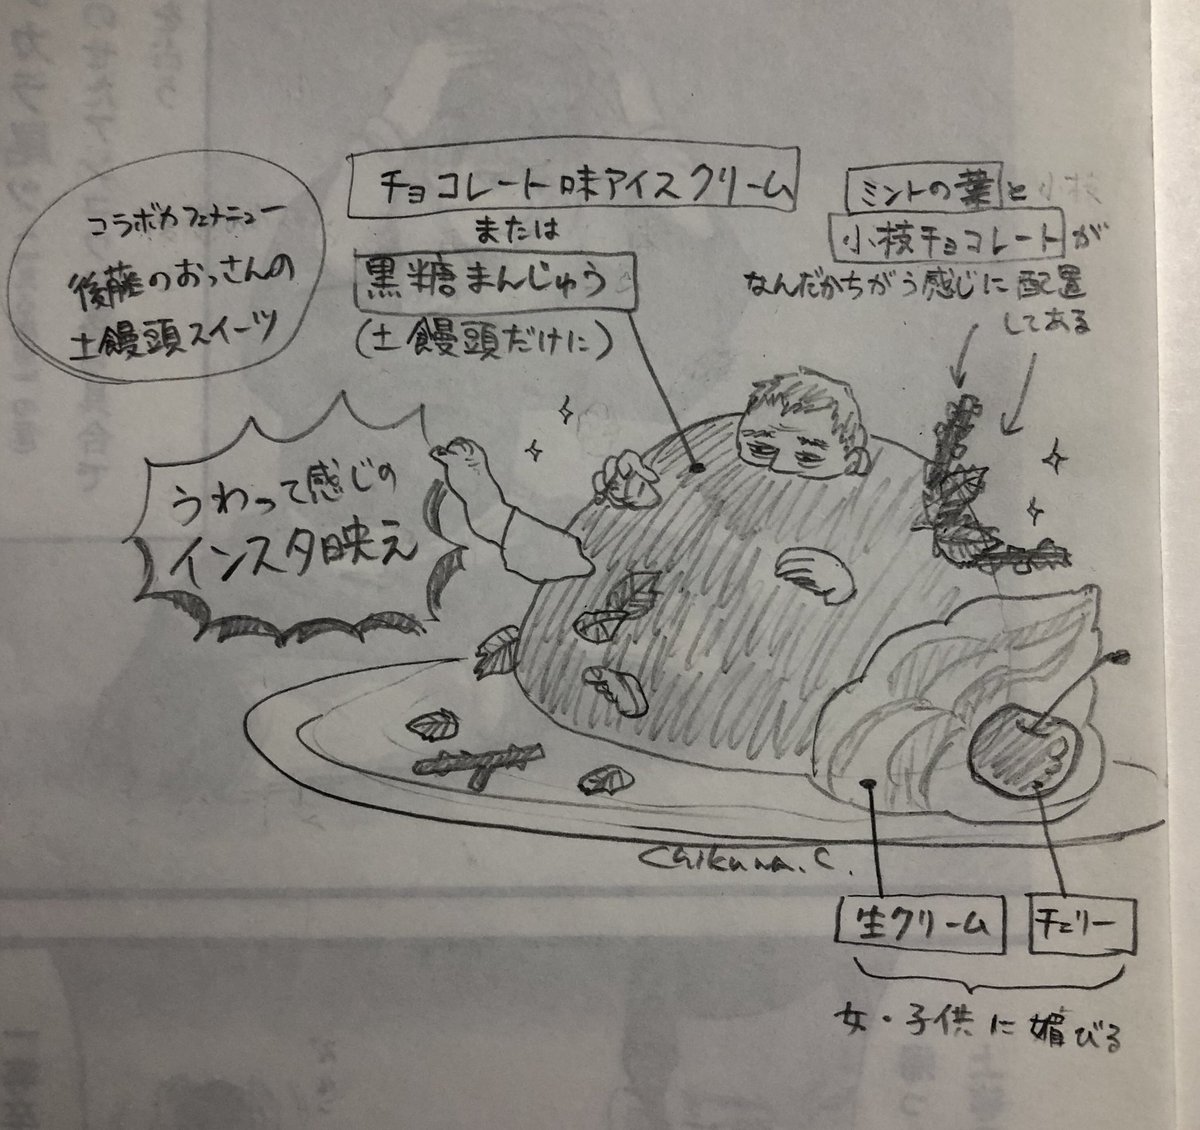 コラボカフェメニュー
後藤のおっさんの
土饅頭スイーツ
チョコレート味アイスクリーム
または
黒糖まんじゅう
(土饅頭だけに)
ミントの葉と
小枝チョコレートが
なんだかちがう感じに配置
してある
うわって感じの
インスタ映え
Chikuma.C.
生クリーム
チェリー
女・子供に媚びる